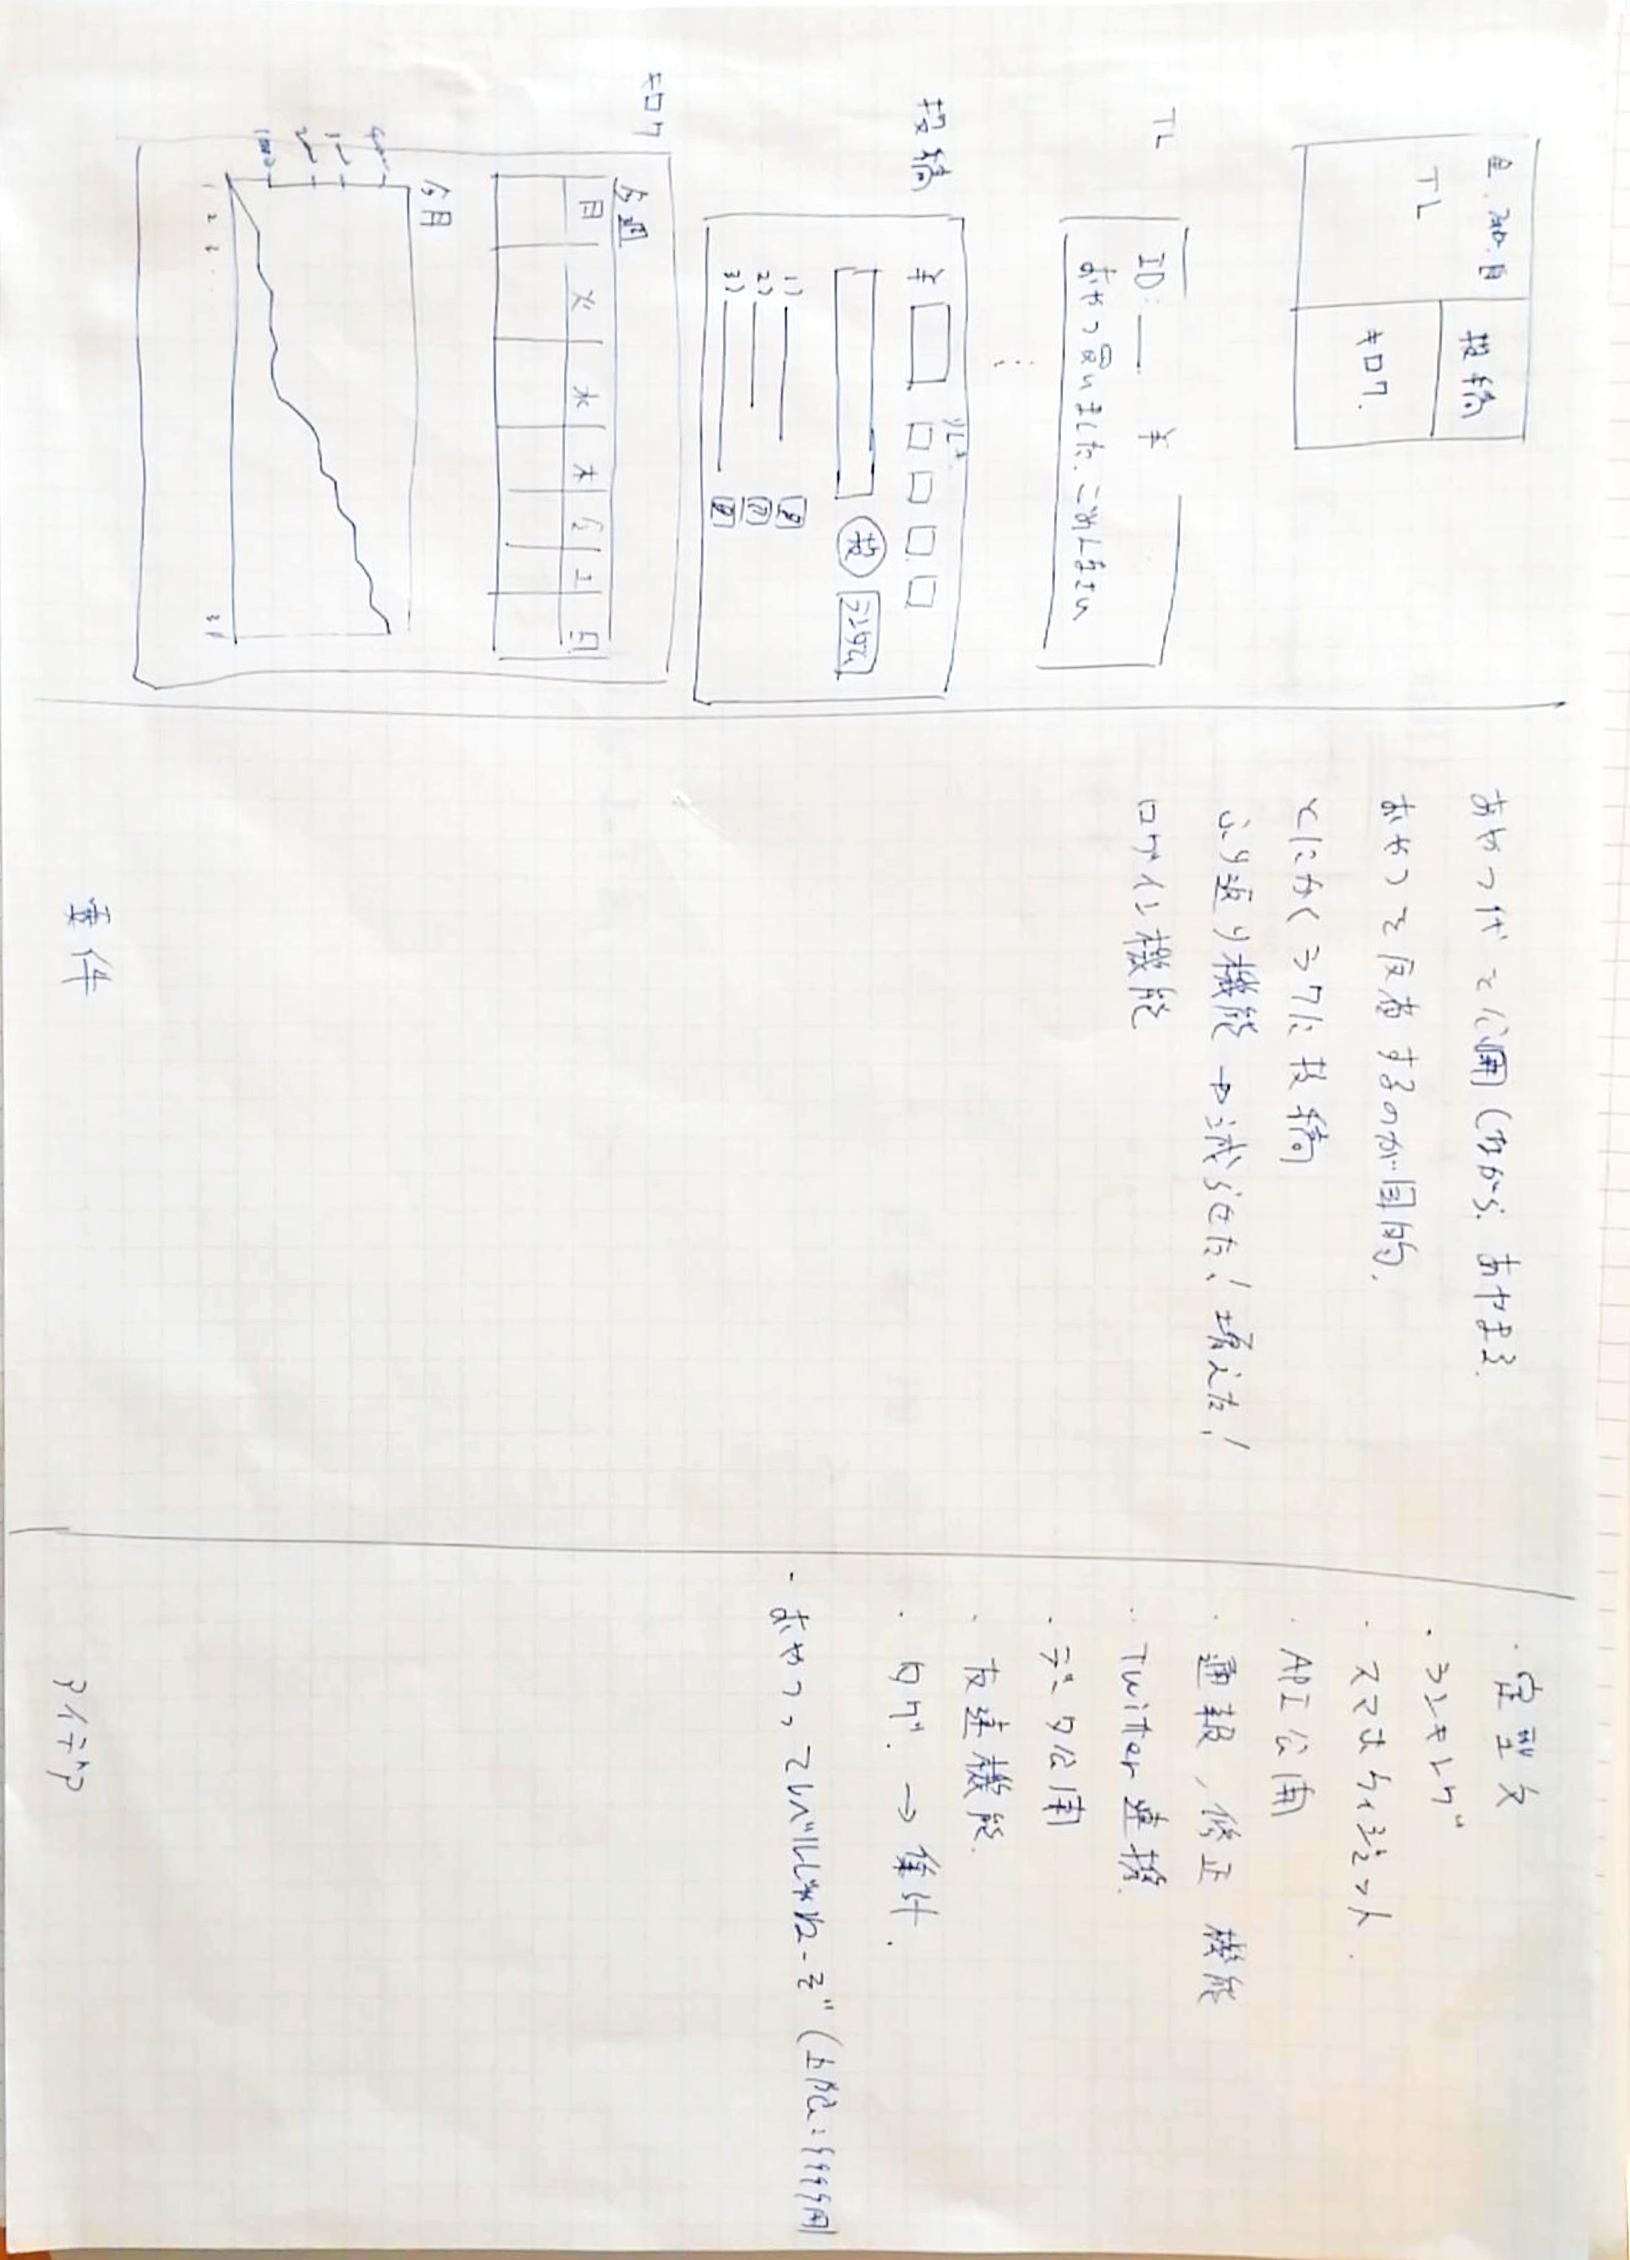 全、フォロー、自
TL
投稿
キロク.
TL
ID: ¥
おやつ買いました. ごめんなさい
投稿
¥
投 ランダム
1)
2)
3)
キロク
今週
月 火 水 木 金 土 日
今月
1000
1 2 3 ... 31
おやつ代を公開しながら. あやまる.
おやつを反省するのが目的.
とにかくラクに投稿
ふり返り機能 → 減らせた! 増えた!
ログイン機能
要件
・定型文
・ランキング
・スマホウィジェット.
・API公開
・通報, 修正 機能
・Twitter 連携.
・データ公開
・友達機能.
・タグ. → 集計.
・おやつってレベルじゃねーぞ (上限: 9999円
アイデア